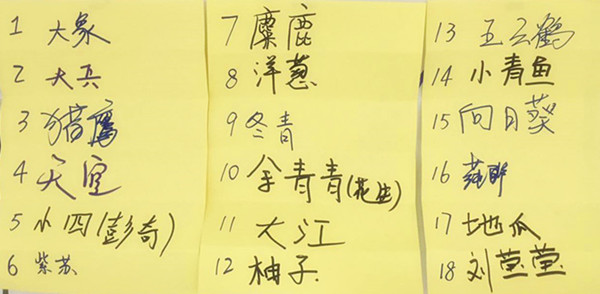 1 大象
2 大兵
3 猎鹰
4 天空
5 小四(彭奇)
6 紫苏
7 麋鹿
8 洋葱
9 冬青
10 余青青(花生)
11 大江
12 柚子
13 五云鹤
14 小青鱼
15 向日葵
16
17 地瓜
18 刘莹莹